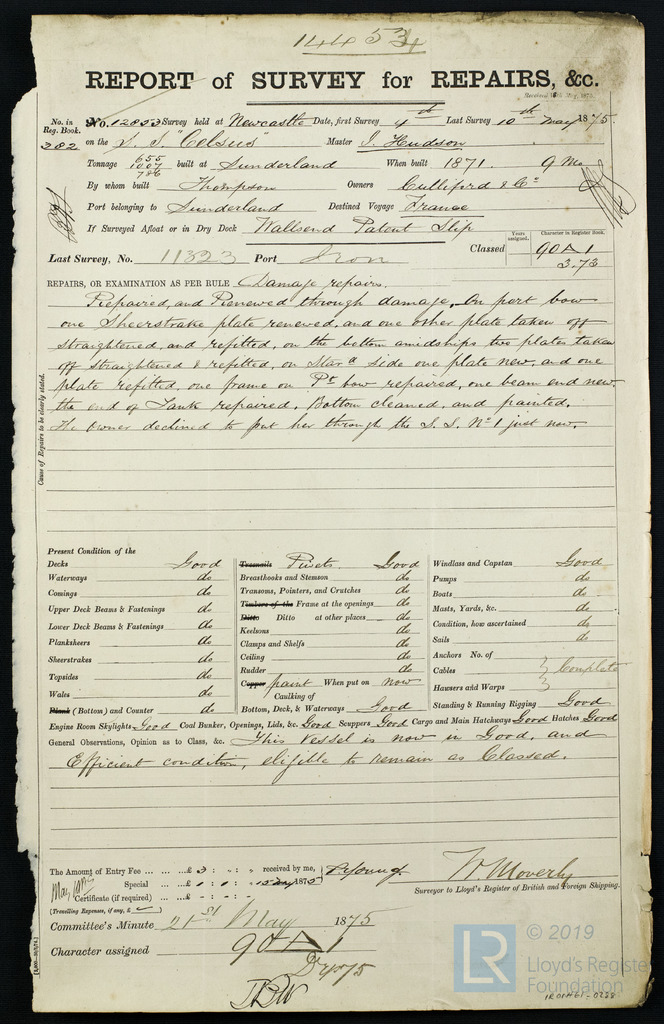 14453
REPORT of SURVEY for REPAIRS, &c.
No. in Reg. Book. No. 12853 Survey held at Newcastle Date, first Survey 4th Last Survey 10th May 1875
282 on the S. S. "Celsus" Master J. Hudson
Tonnage 655 1007 786 built at Sunderland When built 1871. 9 Mo
By whom built Thompson Owners Culliford & Co
Port belonging to Sunderland Destined Voyage France
If Surveyed Afloat or in Dry Dock Wallsend Patent Slip
Years assigned. Character in Register Book.
Last Survey, No. 11323 Port Iron Classed 90 A 1
3.73
REPAIRS, OR EXAMINATION AS PER RULE Damage repairs.
Repaired, and Renewed through damage. On port bow
one Sheerstrake plate renewed, and one other plate taken off
straightened, and refitted, on the bottom amidships two plates taken
off straightened & refitted, on Starbd side one plate new, and one
plate refitted, one frame on Pt bow repaired, one beam end new
the end of Tank repaired, Bottom cleaned, and painted.
The owner declined to put her through the S. S. No 1 just now.
Cause of Repairs to be clearly stated.
Present Condition of the
Decks Good
Waterways do
Comings do
Upper Deck Beams & Fastenings do
Lower Deck Beams & Fastenings do
Planksheers do
Sheerstrakes do
Topsides do
Wales do
Plank (Bottom) and Counter do
Treenails Rivets. Good
Breasthooks and Stemson do
Transoms, Pointers, and Crutches do
Timbers of the Frame at the openings do
Ditto Ditto at other places do
Keelsons do
Clamps and Shelfs do
Ceiling do
Rudder do
Copper paint When put on now
Caulking of
Bottom, Deck, & Waterways Good
Windlass and Capstan Good
Pumps do
Boats do
Masts, Yards, &c. do
Condition, how ascertained do
Sails do
Anchors No. of
Cables } Complete
Hawsers and Warps }
Standing & Running Rigging Good
Engine Room Skylights Good Coal Bunker, Openings, Lids, &c. Good Scuppers Good Cargo and Main Hatchways Good Hatches Good
General Observations, Opinion as to Class, &c. This Vessel is now in Good, and
Efficient condition, eligible to remain as Classed.
The Amount of Entry Fee ... £ : : received by me,
Special ... £ 1 : 1 : 1875
Certificate (if required) ... £ : :
(Travelling Expenses, if any, £ )
W. Moverly
Surveyor to Lloyd's Register of British and Foreign Shipping.
Committee's Minute 21st May 1875
Character assigned 90 A 1
© 2019
LR
Lloyd's Register
Foundation
IRON461-0238